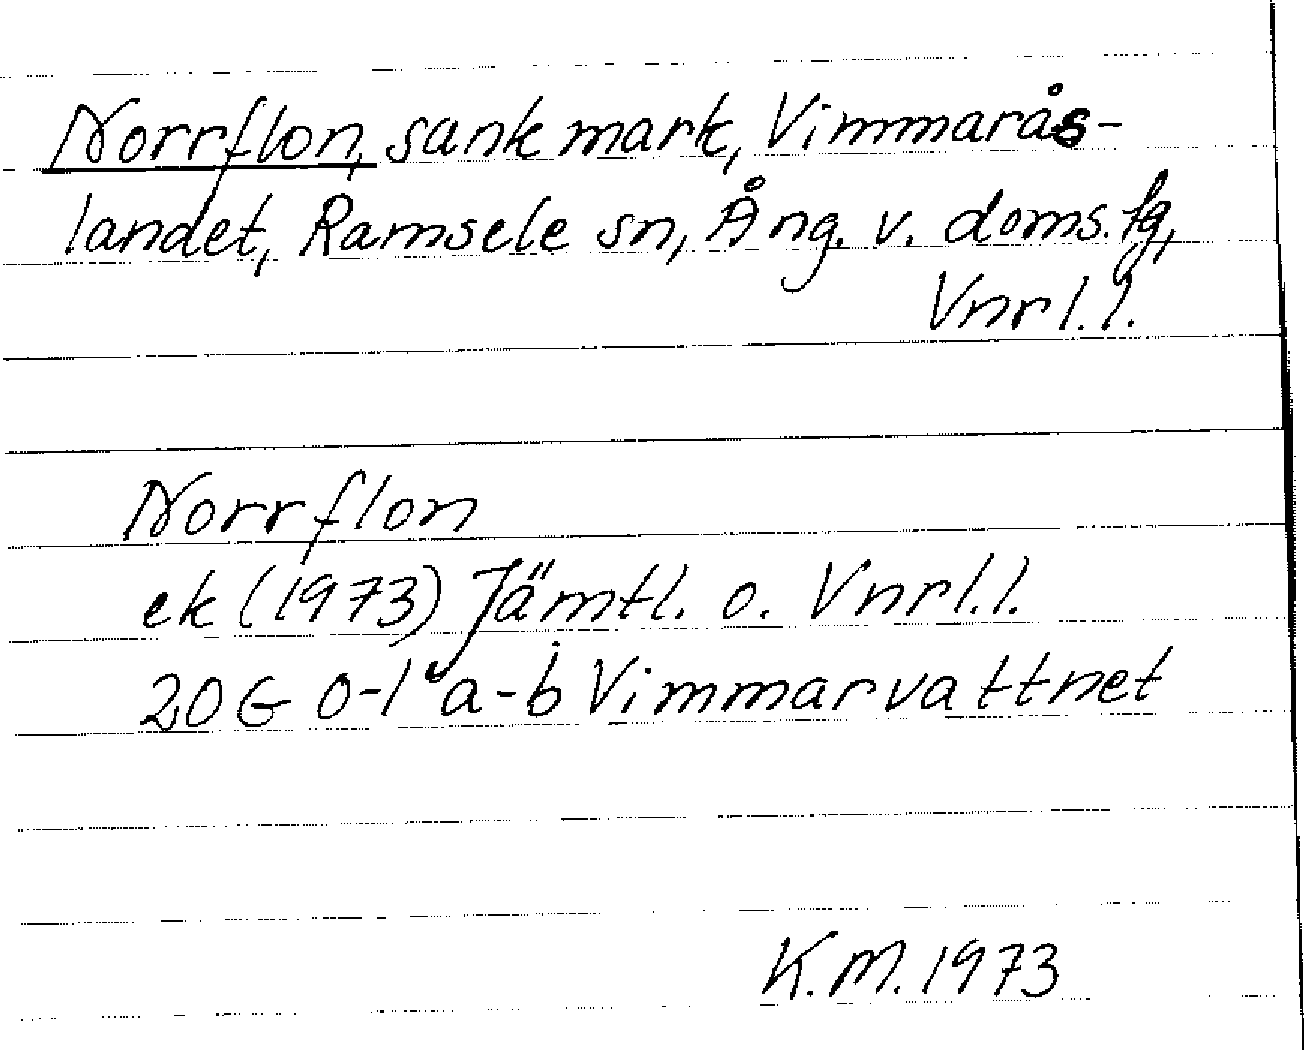 Norrflon, sank mark, Vimmarås-
landet, Ramsele sn, Ång. v. doms.fg,
Vnrl.l.
Norrflon
ek (1973) Jämtl. o. Vnrl.l.
20G 0-1 a-b Vimmarvattnet
K.M. 1973